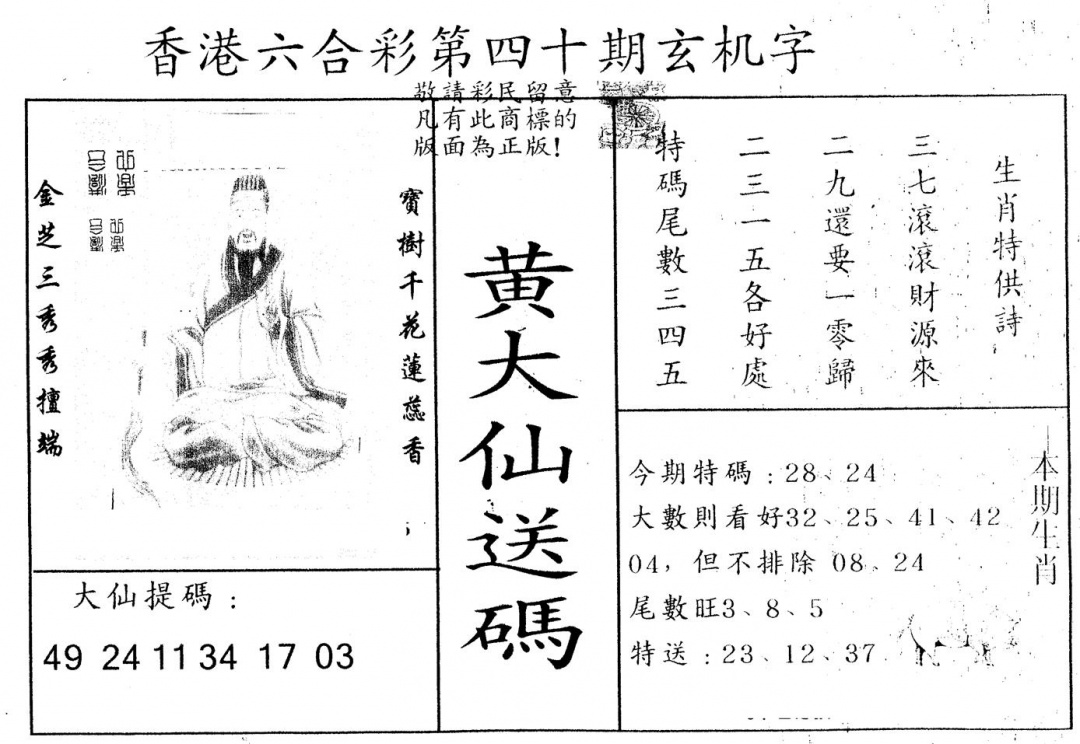 香港六合彩第四十期玄机字
敬請彩民留意
凡有此商標的
版面為正版!
寶樹千花蓮蕊香
金芝三秀秀擅端
大仙提碼:
49 24 11 34 17 03
黄大仙送碼
生肖特供詩
三七滾滾財源來
二九還要一零歸
二三一五各好處
特碼尾數三四五
本期生肖
今期特碼:28、24
大數則看好32、25、41、42
04,但不排除 08、24
尾數旺3、8、5
特送:23、12、37